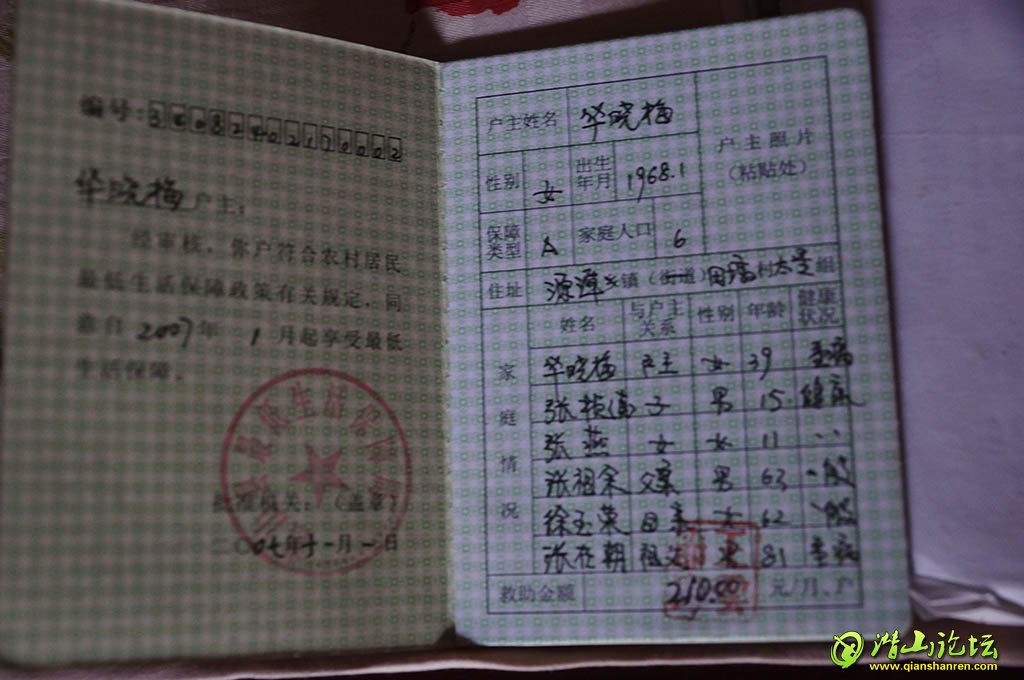 编号:
华晓梅户主:
经审核，你户符合农村居民
最低生活保障政策有关规定，同
意自2007年1月起享受最低
生活保障。
批准机关:（盖章）
二〇〇七年十一月一日
户主姓名 华晓梅 户主照片（粘贴处）
性别 女 出生年月 1968.1
保障类型 A 家庭人口 6
住址 源潭乡镇（街道）田墩村 组
家庭情况 姓名 与户主关系 性别 年龄 健康状况
华晓梅 户主 女 39 重病
张 子 男 15 健康
张燕 女 女 11 ..
张祖余 父亲 男 63 一般
徐玉荣 母亲 女 62 一般
张在朝 祖父 81 重病
救助金额 210.00 元/月、户
潜山论坛
www.qianshanren.com